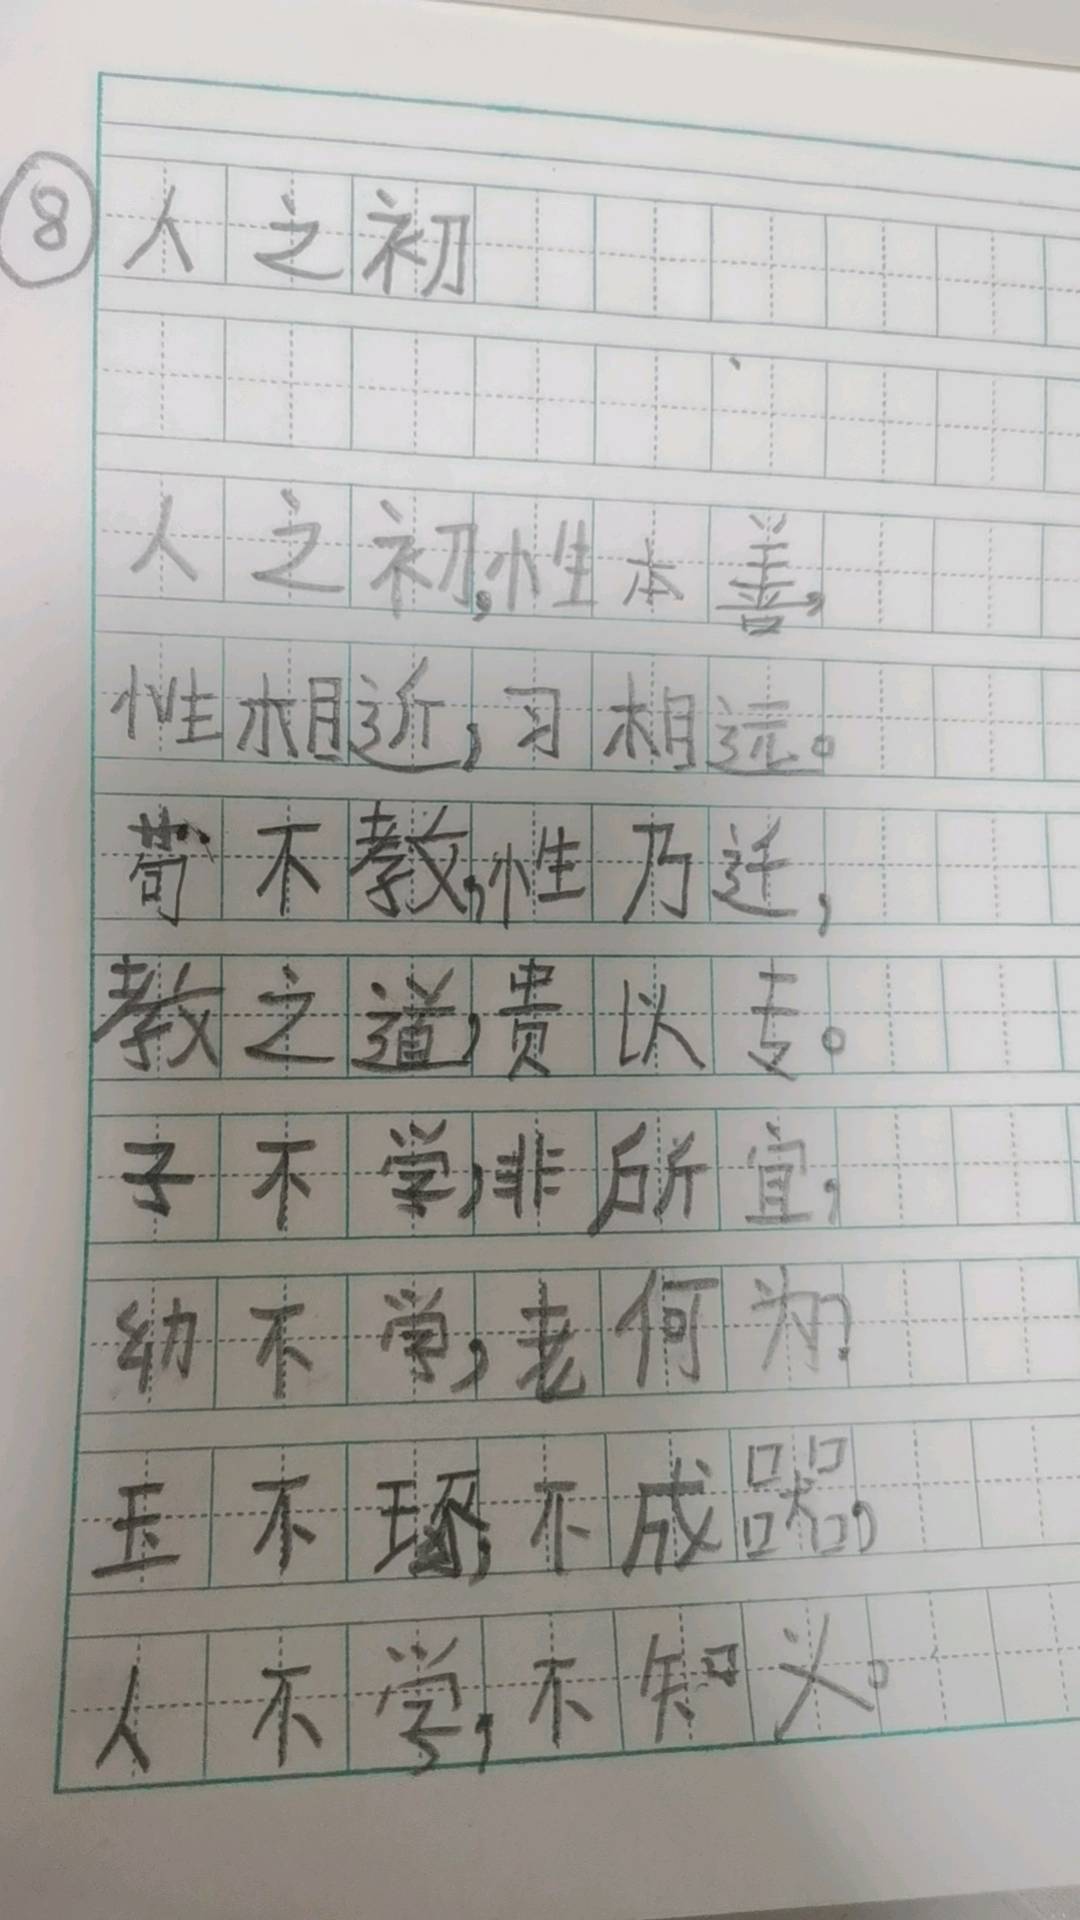 ⑧ 人之初
人之初,性本善,
性相近,习相远。
苟不教,性乃迁,
教之道,贵以专。
子不学,非所宜,
幼不学,老何为?
玉不琢,不成器,
人不学,不知义。